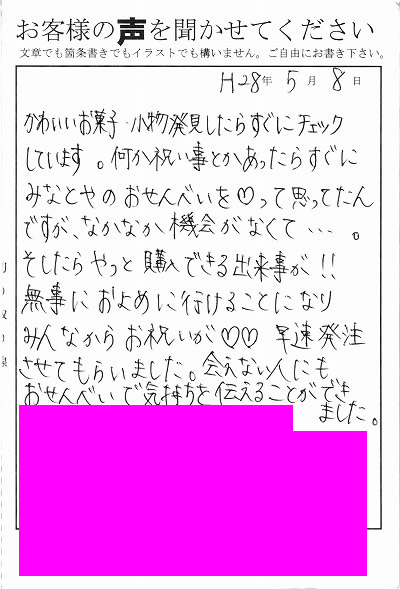 お客様の声を聞かせてください
文章でも箇条書きでもイラストでも構いません。ご自由にお書き下さい。
H28年 5月 8日
かわいいお菓子・小物発見したらすぐにチェック
しています。何か祝い事とかあったらすぐに
みなとやのおせんべいを♡って思ってたん
ですが、なかなか機会がなくて…。
そしたらやっと購入できる出来事が!!
無事におよめに行けることになり
みんなからお祝いが♡♡ 早速発注
させてもらいました。会えない人にも
おせんべいで気持ちを伝えることができ
ました。